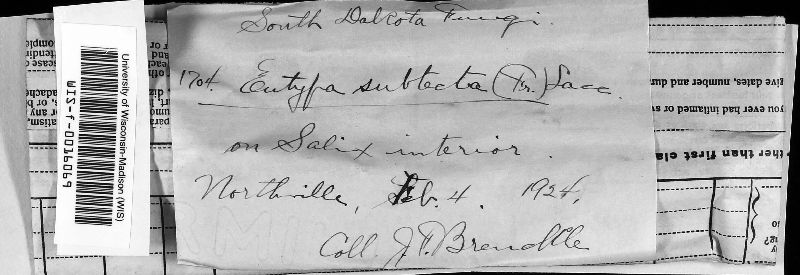 South Dakota Fungi.
1704. Eutypa subtecta (Fr.) Sacc.
on Salix interior.
Northville, Feb. 4. 1924.
Coll. J. F. Brenckle
University of Wisconsin-Madison (WIS)
WIS-f-0016069
give dates, number and du
you ever had inflamed or sw
ther than first cla